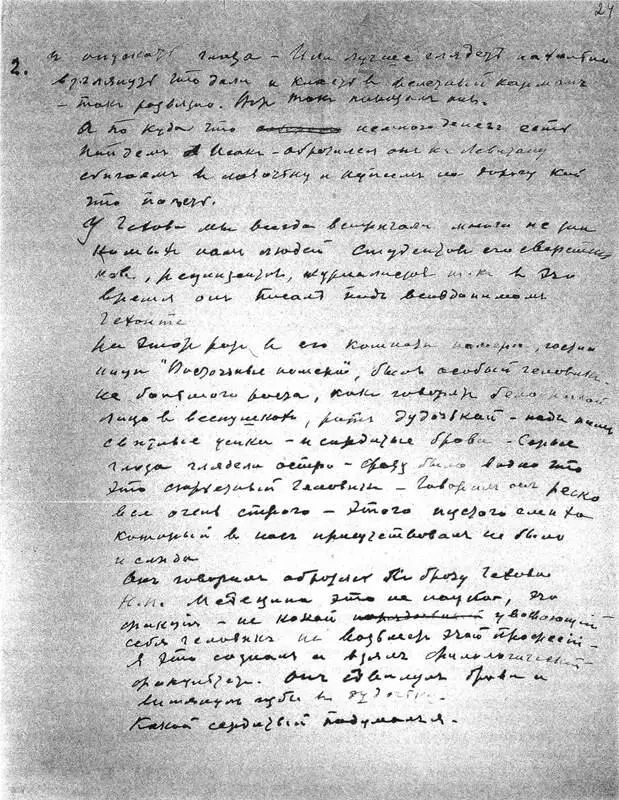 24
2. и опускать глаза - Или лучше глядеть нахально
взглянуть что дали и класть в жилетный карман
- так развязно. Вор так
А то куда что немного денег есть
пойдем Исак - обратился он к Левитану
сбегаем в лавочку и купим на дорогу кой
что поесть.
У Чехова мы всегда встречали много не зна
комых нам людей студентов его сверстни
ков, рецензентов, журналистов т.к. в это
время он писал под псевдонимом
Чехонте
На этот раз в его комнате номера, гости
ницы "Восточные номера", был особый человек -
не большого роста, как говорят белобрысый
лицо в веснушках, рот дудочкой - над ним
светлые усики - и сердитые брови - Серые
глаза глядели остро - сразу было видно что
это серьезный человек - Говорил он резко
все очень строго - этого пустого смеха
который в нас присутствовал не было
и следа
Он говорил обращаясь к брату Чехова
Н.П. Медецина это не наука, это
фикция - не какой уважающий
себя человек не возьмет этой профессии -
Я это сознал и взял филологический
факультет. Он сдвинул брови и
вытянул губы в дудочку.
Какой сердитый подумал я.